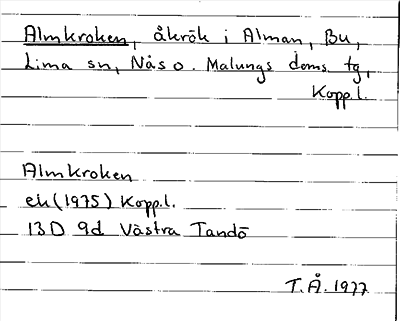 Almkroken, åkrök i Alman, Bu,
Lima sn, Nås o. Malungs doms. tg,
Kopp.l.
Almkroken
ek (1975) Kopp.l.
13D 9d Västra Tandö
T.Å. 1977